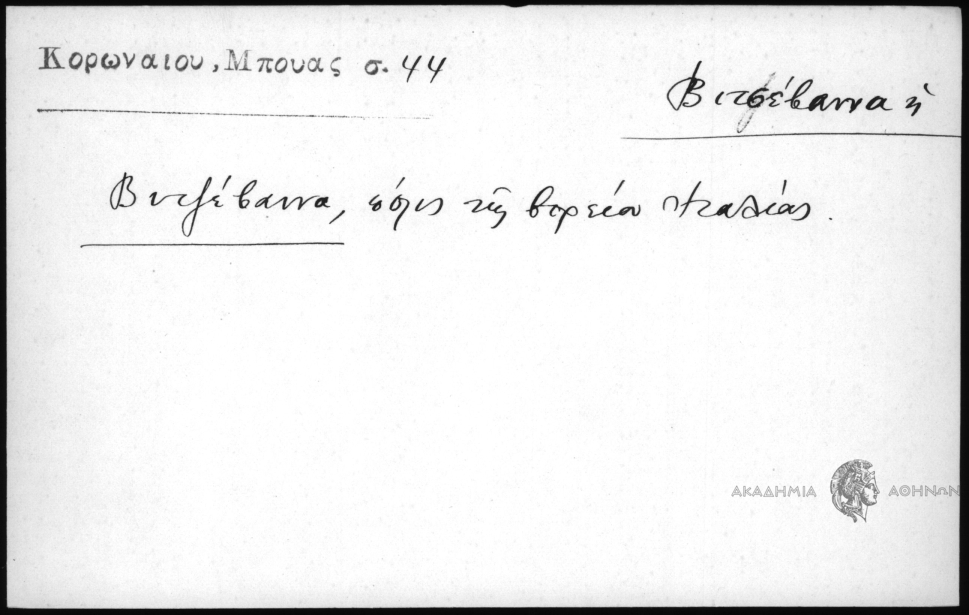 Κορωναιου, Μπουας σ. 44
Βιτζέβαννα ἡ
Βιτζέβαννα, πόλις τῆς βορείου Ἰταλίας.
ΑΚΑΔΗΜΙΑ ΑΘΗΝΩΝ